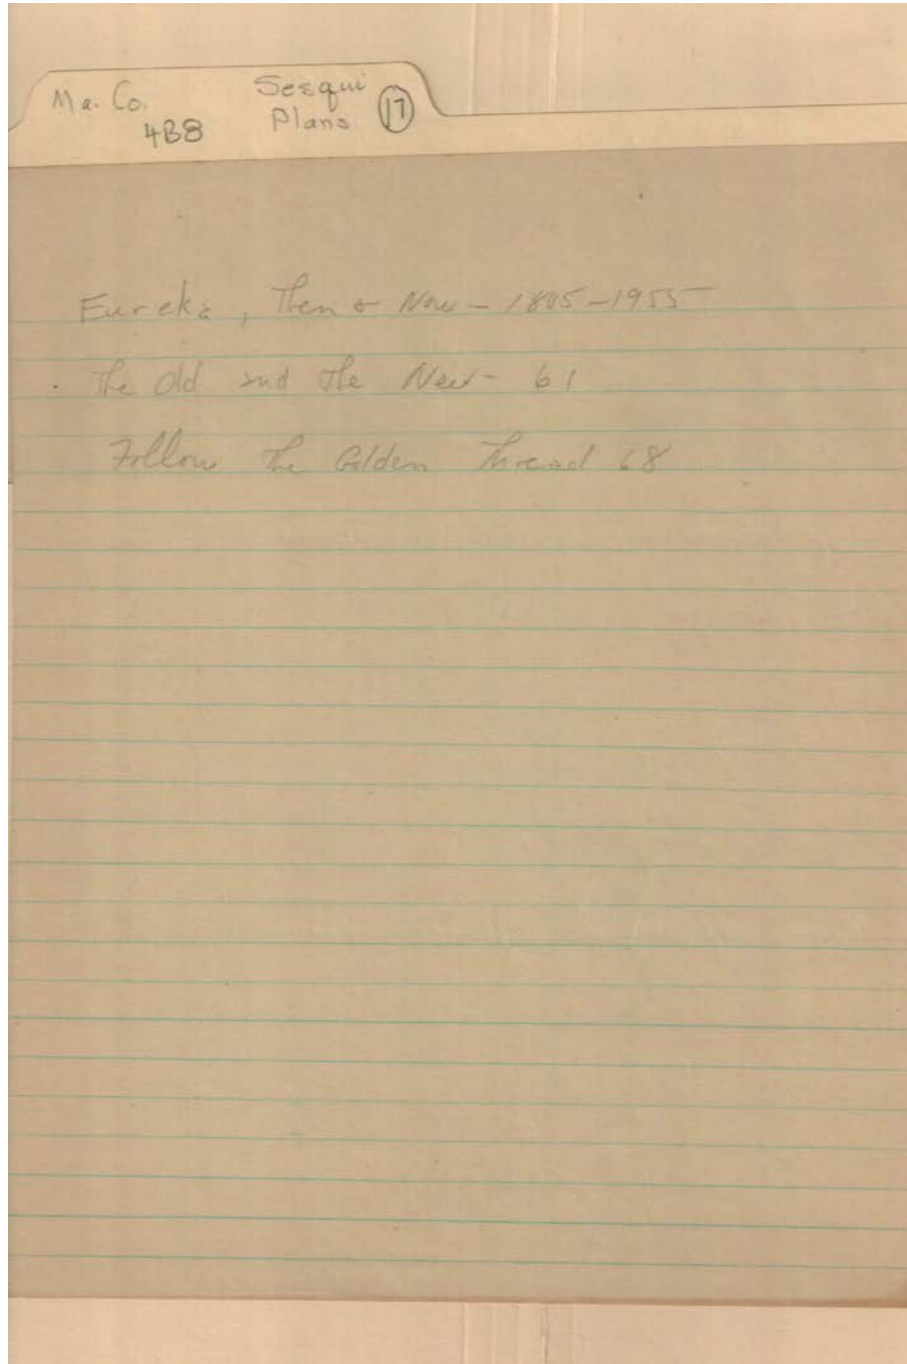 Ma. Co. Sesqui
4B8 Plans 17
Eureka, Then & Now - 1805-1955
The Old and The New - 61
Follow The Golden Thread 68